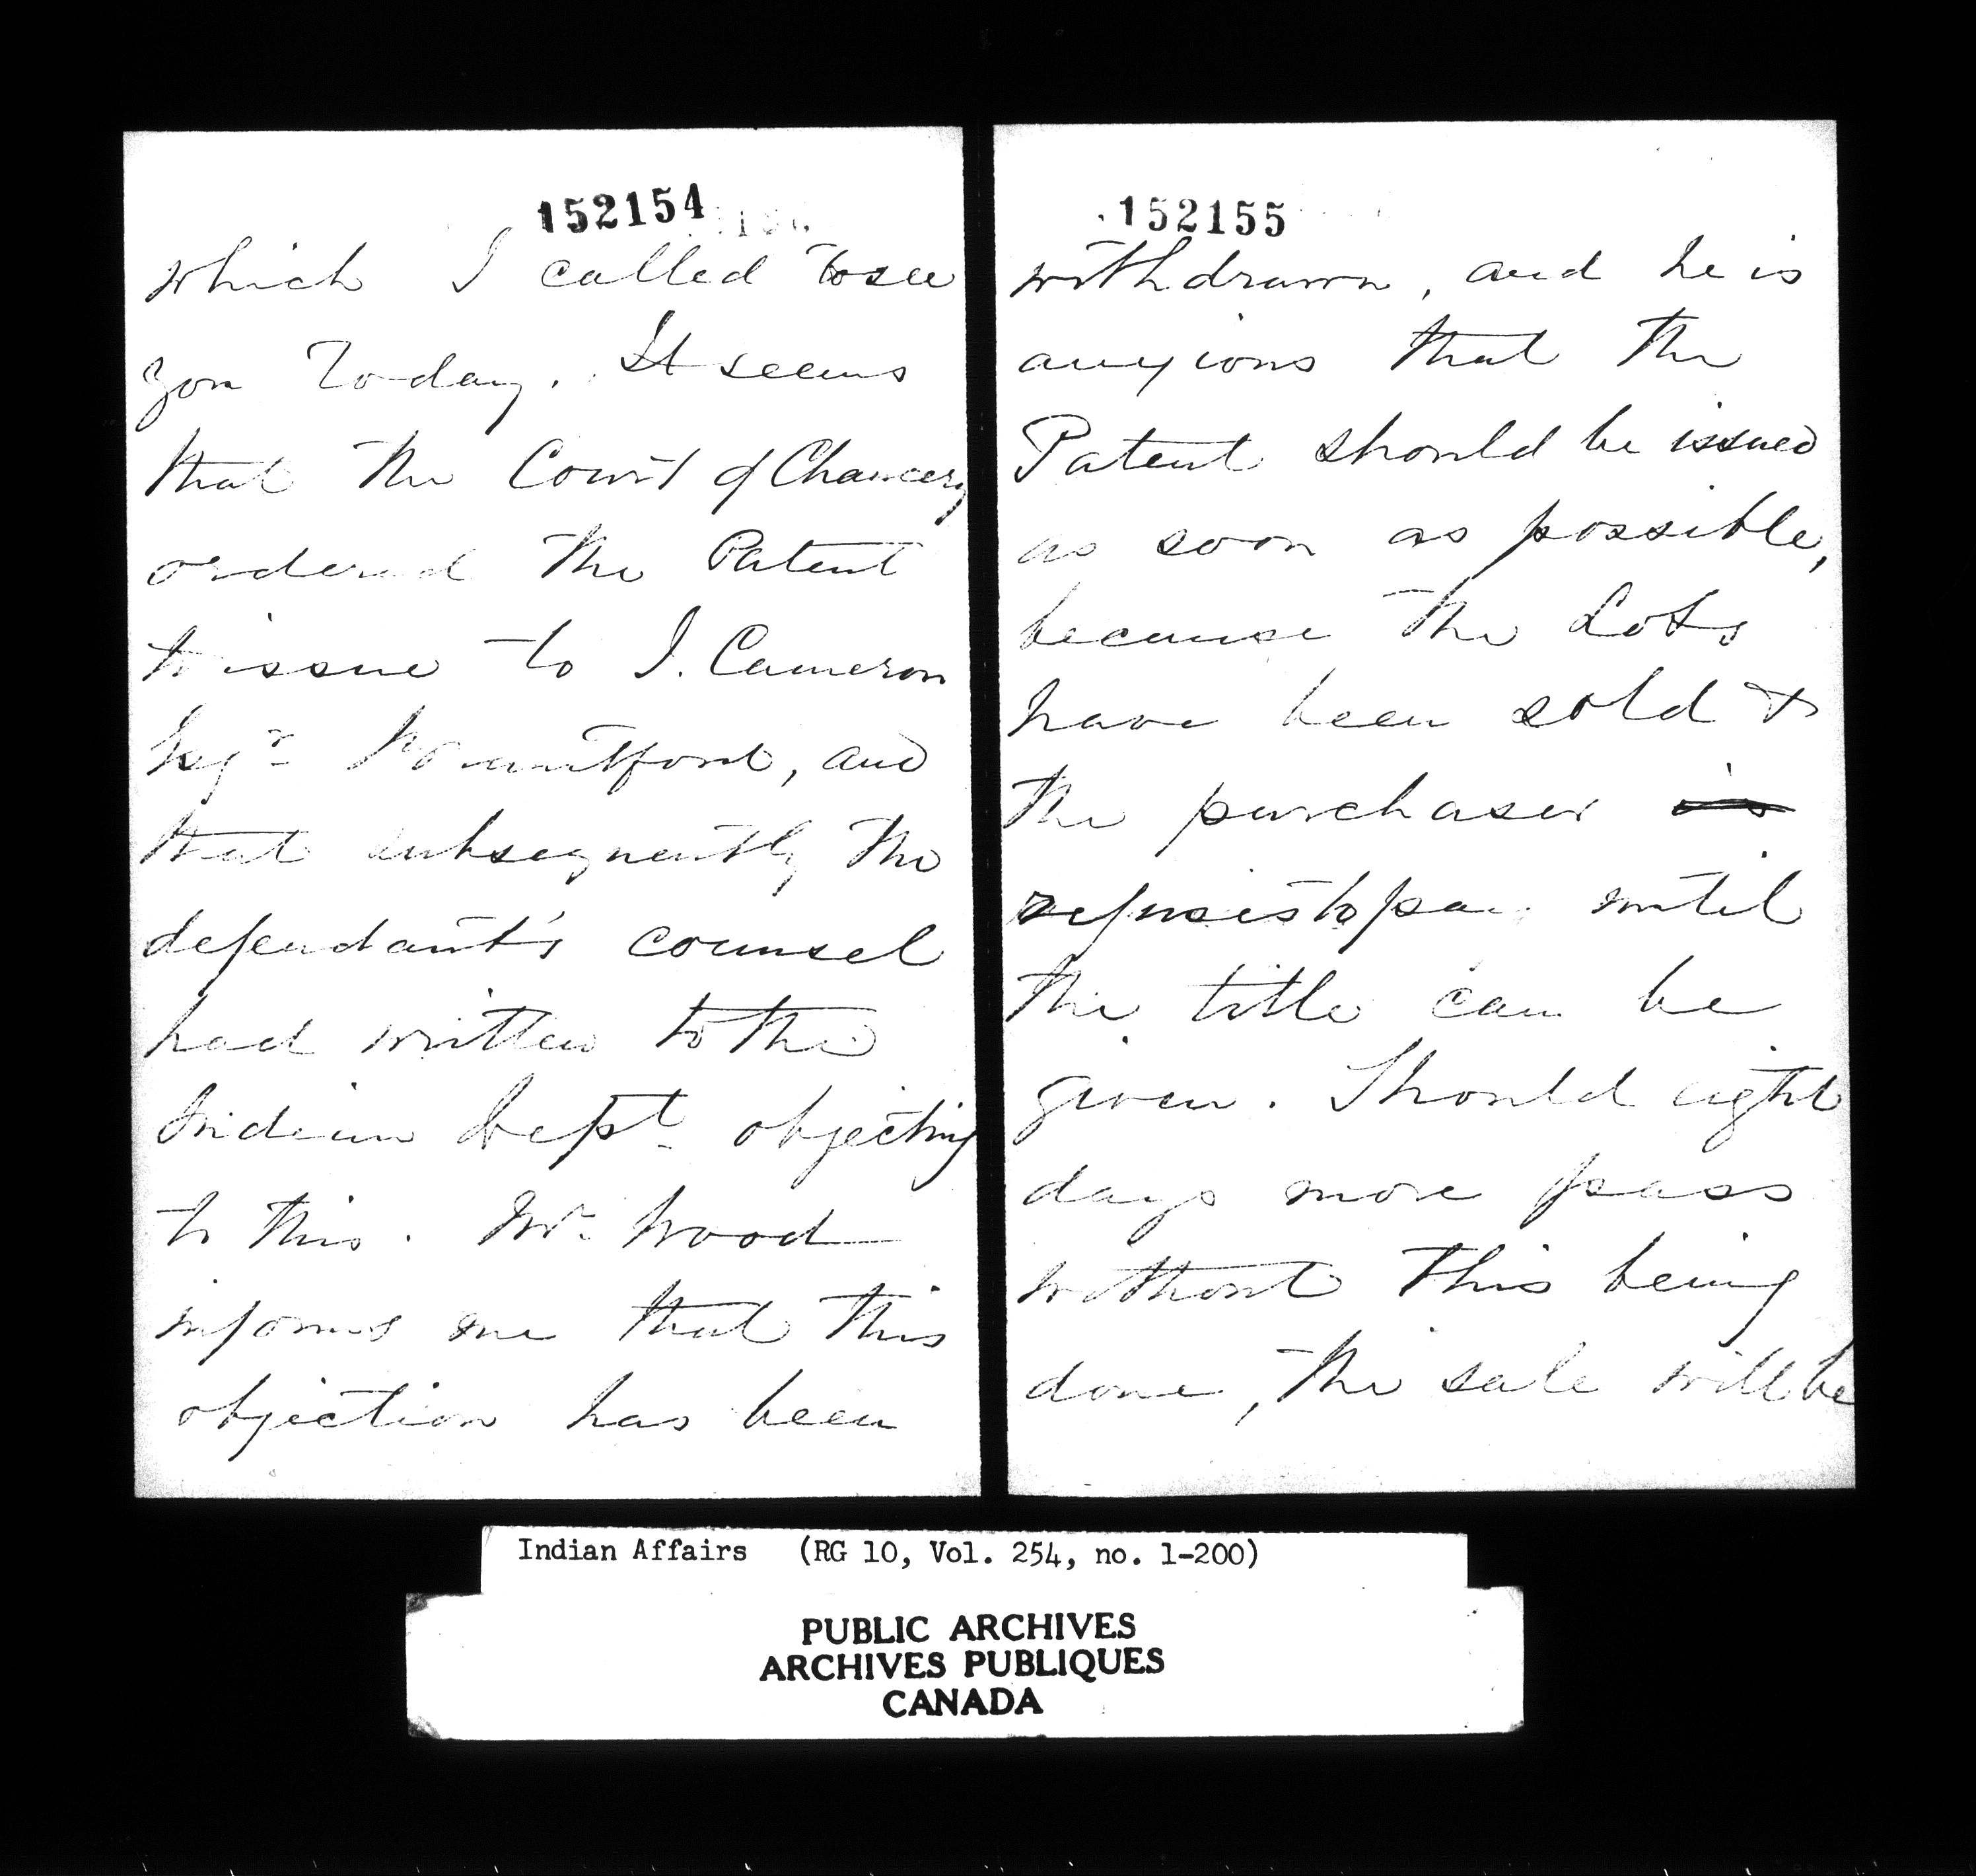 152154
which I called to see
you To-day. It seems
that the Court of Chancery
ordered the Patent
to issue to I. Cameron
Esqr Brantford, and
that subsequently the
defendant's counsel
had written to the
Indian Dept objecting
to this. Mr Wood
informs me that this
objection has been
152155
withdrawn, and he is
anxious that the
Patent should be issued
as soon as possible,
because the Lots
have been sold &
the purchaser is
refuses to pay until
the title can be
given. Should eight
days more pass
without this being
done, the sale will be
Indian Affairs (RG 10, Vol. 254, no. 1-200)
PUBLIC ARCHIVES
ARCHIVES PUBLIQUES
CANADA